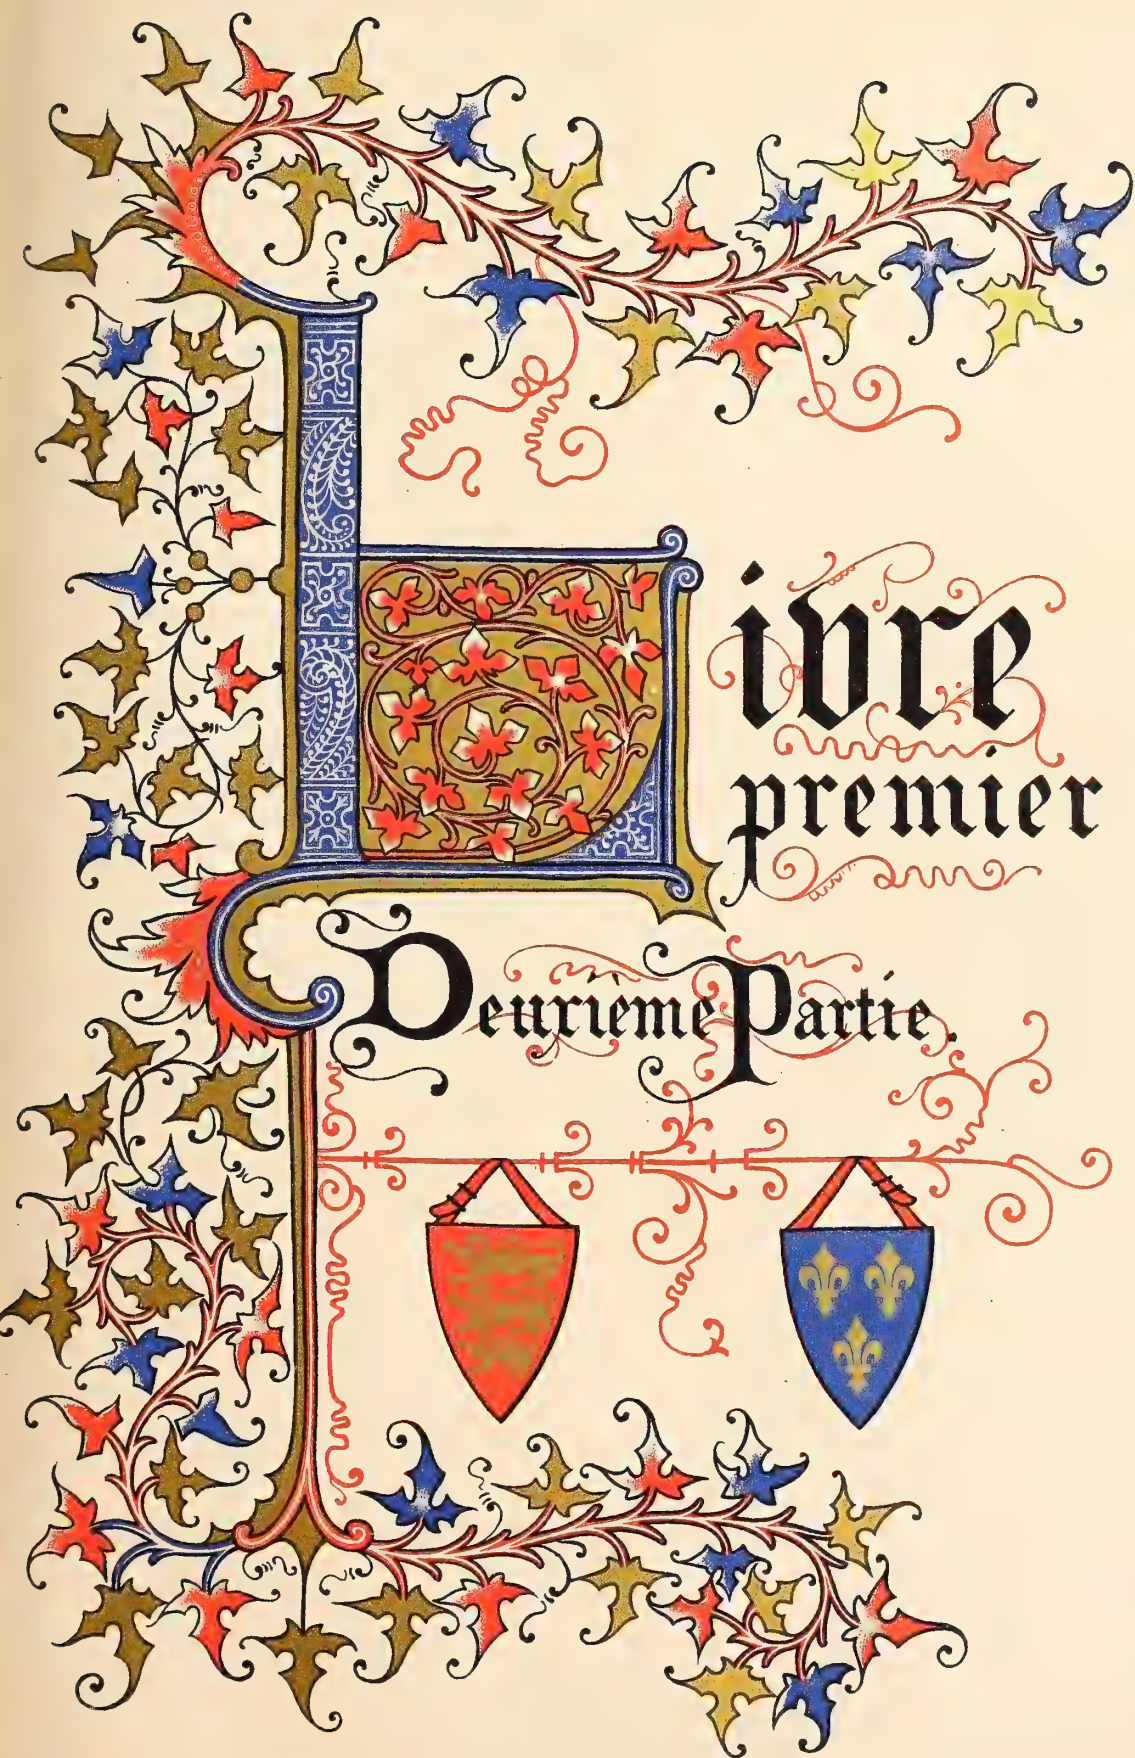 Livre
premier
Deuxième Partie.